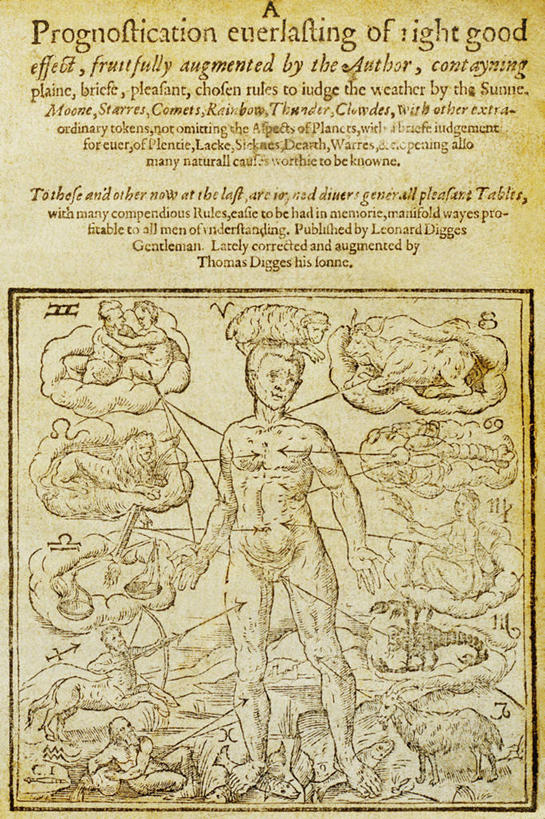 A
Prognoſtication euerlaſting of right good
effect, fruitfully augmented by the Author, contayning
plaine, briefe, pleaſant, choſen rules to iudge the weather by the Sunne,
Moone, Starres, Comets, Rainbow, Thunder, Clowdes, with other extra-
ordinary tokens, not omitting the Aſpects of Planets, with a briefe iudgement
for euer, of Plentie, Lacke, Sicknes, Dearth, Warres, &c. opening alſo
many naturall cauſes worthie to be knowne.
To theſe and other now at the laſt, are ioyned diuers generall pleaſant Tables,
with many compendious Rules, eaſie to be had in memorie, manifold wayes pro-
fitable to all men of vnderſtanding. Publiſhed by Leonard Digges
Gentleman. Lately corrected and augmented by
Thomas Digges his ſonne.
♊ ♈ ♉
♌ ♋
♎ ♍
♐ ♏
♒ ♓ ♑